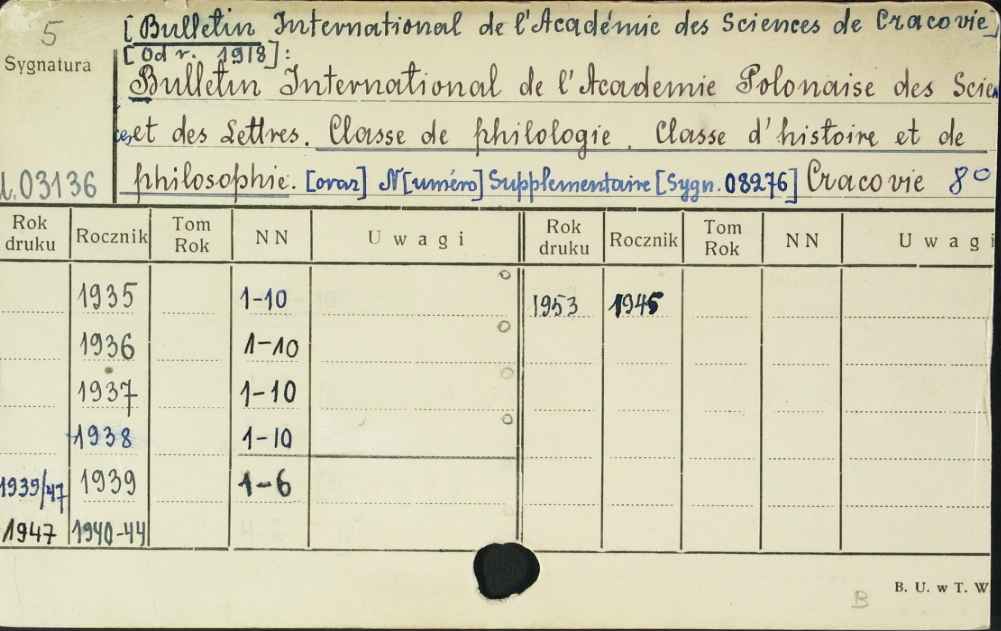 5
[Bulletin International de l'Académie des Sciences de Cracovie]
[Od r. 1918]:
Sygnatura
Bulletin International de l'Academie Polonaise des Scien
ces, et des Lettres. Classe de philologie. Classe d'histoire et de
03136 philosophie. [oraz] N[uméro] Supplementaire [Sygn. 08276] Cracovie 8°
Rok druku Rocznik Tom Rok NN Uwagi Rok druku Rocznik Tom Rok NN Uwagi
1935 1-10 1953 1945
1936 1-10
1937 1-10
1938 1-10
1939/47 1939 1-6
1947 1940-44
B. U. w T. W
B